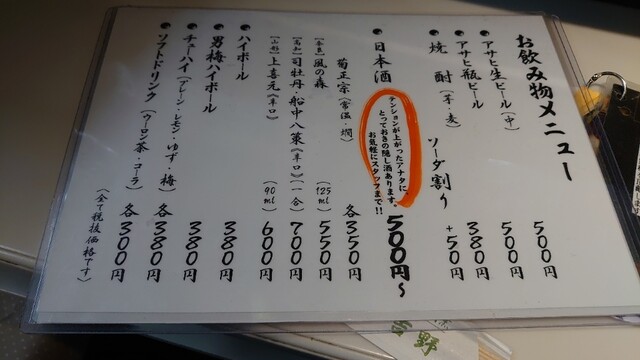 お飲み物メニュー
●アサヒ生ビール(中) 500円
●アサヒ瓶ビール 500円
●焼酎(芋・麦) 380円
ソーダ割り +50円
●日本酒 500円〜
テンションが上がったアナタに、
とっておきの隠し酒あります。
お気軽にスタッフまで!!
菊正宗(常温・燗) 各350円
[奈良]風の森 (125ml) 550円
[高知]司牡丹・船中八策《辛口》(一合) 700円
[山形]上喜元《辛口》 (90ml) 600円
●ハイボール 380円
●男梅ハイボール 380円
●チューハイ(プレーン・レモン・ゆず・梅) 各380円
●ソフトドリンク(ウーロン茶・コーラ) 各300円
(全て税抜価格です)
吉野